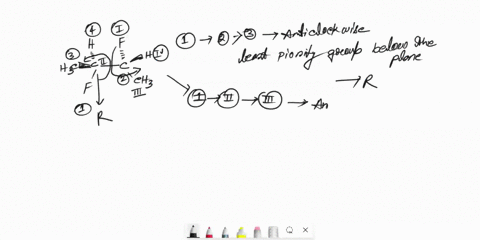 ④ Ⓘ
H F
③ H₃C C Ⅱ C H Ⅳ
F ② CH₃
Ⅲ
① R
① → ② → ③ → Anticlockwise
least piority group below the plane
→ R
Ⓘ → Ⅱ → Ⅲ → An